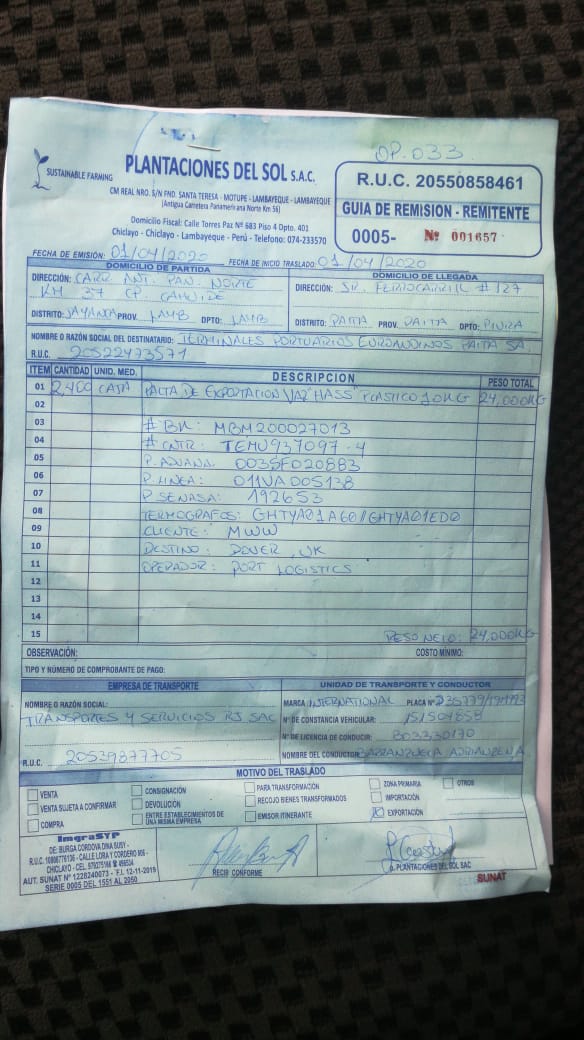 OP. 033
SUSTAINABLE FARMING
PLANTACIONES DEL SOL S.A.C.
CM REAL NRO. S/N FND. SANTA TERESA - MOTUPE - LAMBAYEQUE - LAMBAYEQUE
(Antigua Carretera Panamericana Norte Km 56)
Domicilio Fiscal: Calle Torres Paz Nº 683 Piso 4 Dpto. 401
Chiclayo - Chiclayo - Lambayeque - Perú - Telefono: 074-233570
R.U.C. 20550858461
GUIA DE REMISION - REMITENTE
0005- Nº 001657
FECHA DE EMISIÓN: 01/04/2020 FECHA DE INICIO TRASLADO: 01/04/2020
DOMICILIO DE PARTIDA
DIRECCIÓN: CARR. ANT. PAN. NORTE
KM 37 CP.
DISTRITO: JAYANCA PROV. LAMB DPTO: LAMB
DOMICILIO DE LLEGADA
DIRECCIÓN: JR. FERROCARRIL # 127
DISTRITO: PAITA PROV: PAITA DPTO: PIURA
NOMBRE O RAZÓN SOCIAL DEL DESTINATARIO: TERMINALES PORTUARIOS EUROANDINOS PAITA SA.
R.U.C. 20522473571
ITEM CANTIDAD UNID. MED. DESCRIPCION PESO TOTAL
01 2,400 CAJA PALTA DE EXPORTACION VAR "HASS" PLASTICO 10KG 24,000KG
02
03 # BK: MBM200027013
04 # CNTR: TEMU937097-4
05 P. ADUANA: 0035F020883
06 P. LINEA: 011VA005138
07 P SENASA: 192653
08 TERMOGRAFOS: GHTYA01A60//GHTYA01ED0
09 CLIENTE: MWW
10 DESTINO: DOVER, UK
11 OPERADOR: PORT LOGISTICS
12
13
14
15 PESO NETO: 24,000KG
OBSERVACIÓN: COSTO MÍNIMO:
TIPO Y NÚMERO DE COMPROBANTE DE PAGO:
EMPRESA DE TRANSPORTE
NOMBRE O RAZÓN SOCIAL:
TRANSPORTES Y SERVICIOS RJ SAC
R.U.C. 20539877705
UNIDAD DE TRANSPORTE Y CONDUCTOR
MARCA INTERNATIONAL PLACA Nº
Nº DE CONSTANCIA VEHICULAR: 151504858
Nº DE LICENCIA DE CONDUCIR: B03330170
NOMBRE DEL CONDUCTOR: BARRANZUELA ADRIANZEN A
MOTIVO DEL TRASLADO
VENTA
VENTA SUJETA A CONFIRMAR
COMPRA
CONSIGNACIÓN
DEVOLUCIÓN
ENTRE ESTABLECIMIENTOS DE UNA MISMA EMPRESA
PARA TRANSFORMACIÓN
RECOJO BIENES TRANSFORMADOS
EMISOR ITINERANTE
ZONA PRIMARIA
IMPORTACIÓN
EXPORTACIÓN
OTROS
ImgraSYP
DE: BURGA CORDOVA DINA SUSY -
R.U.C. 10808776106 - CALLE LORA Y CORDERO 906 -
CHICLAYO - CEL.
AUT. SUNAT Nº 1228240073 - F.I. 12-11-2019
SERIE 0005 DEL 1551 AL 2050
RECIBI CONFORME
p. PLANTACIONES DEL SOL SAC
SUNAT